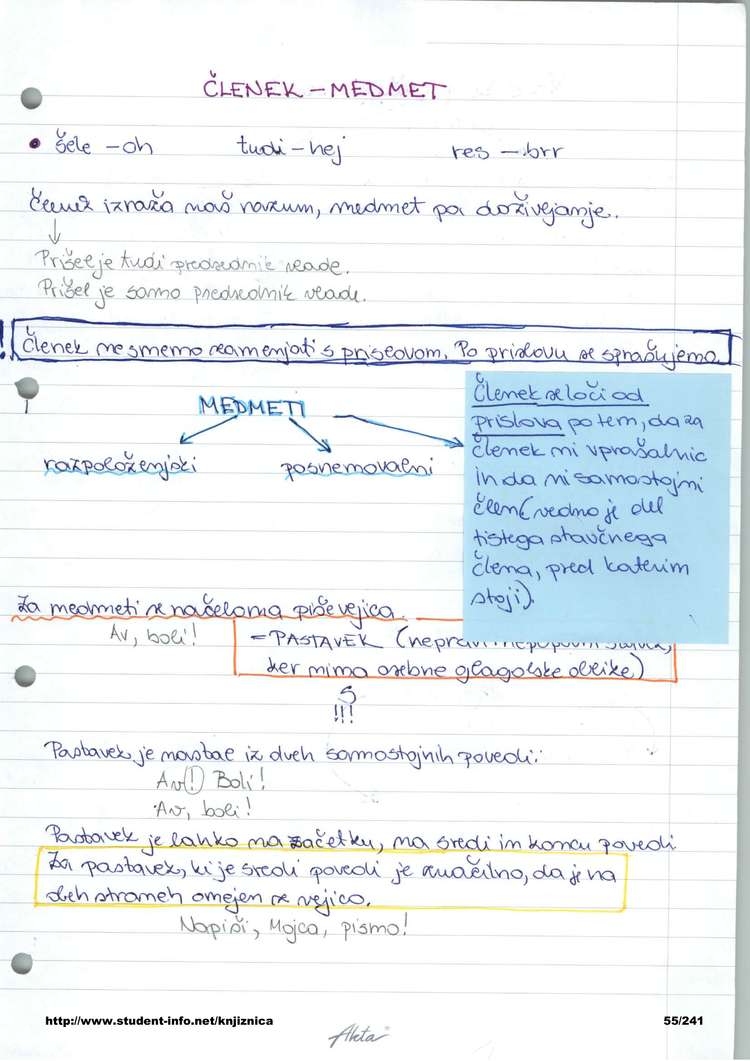 ČLENEK – MEDMET
• šele – oh tudi – hej res – brr
Členek izraža naš razum, medmet pa doživejanje.
Prišel je tudi predsednik vlade.
Prišel je samo predsednik vlade.
! Členek ne smemo zamenjati s prislovom. Po prislovu se sprašujemo.
MEDMETI
razpoloženjski posnemovalni
Členek se loči od
prislova po tem, da za
členek ni vprašalnic
in da ni samostojni
člen (vedno je del
tistega stavčnega
člena, pred katerim
stoji).
Za medmeti se načeloma piše vejica.
Av, boli!
= PASTAVEK (nepravi nepopolni
ker nima osebne glagolske oblike)
!!!
Pastavek je nastal iz dveh samostojnih povedi:
Av(!) Boli!
Av, boli!
Pastavek je lahko na začetku, na sredi in koncu povedi
Za pastavek, ki je sredi povedi je značilno, da je na
obeh straneh omejen z vejico.
Napiši, Mojca, pismo!
http://www.student-info.net/knjiznica 55/241
Akta